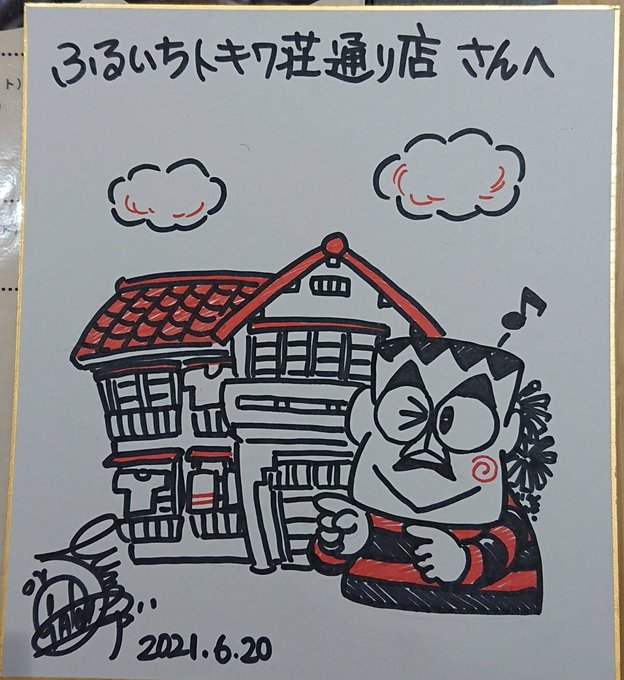 ふるいちトキワ荘通り店 さんへ
2021.6.20